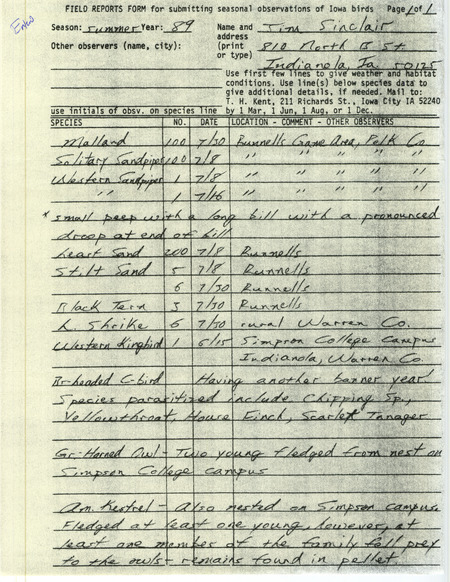 Enw
FIELD REPORTS FORM for submitting seasonal observations of Iowa birds Page 1 of 1
Season: summer Year: 89 Name and Jim Sinclair
address
Other observers (name, city): (print 810 North B St.
or type) Indianola, Ia 50125
Use first few lines to give weather and habitat
conditions. Use line(s) below species data to
give additional details, if needed. Mail to:
T. H. Kent, 211 Richards St., Iowa City IA 52240
use initials of obsv. on species line by 1 Mar, 1 Jun, 1 Aug, or 1 Dec.
SPECIES NO. DATE LOCATION - COMMENT - OTHER OBSERVERS
Mallard 100 7/30 Runnells Game Area, Polk Co
Solitary Sandpiper 100 7/8 " " " " "
Western Sandpiper 1 7/8 " " " " "
" " 1 7/16 " " " " "
* small peep with a long bill with a pronounced
droop at end of bill
Least Sand 200 7/8 Runnells
Stilt Sand 5 7/8 Runnells
6 7/30 Runnells
Black Tern 3 7/30 Runnells
L. Shrike 6 7/30 rural Warren Co.
Western Kingbird 1 6/15 Simpson College campus
Indianola, Warren Co.
Br-headed C-bird Having another banner year!
Species parasitized include Chipping Sp.,
Yellowthroat, House Finch, Scarlet Tanager
Gr. Horned Owl - Two young fledged from nest on
Simpson College campus
Am. Kestrel - Also nested on Simpson campus.
Fledged at least one young, however, at
least one member of the family fell prey
to the owls - remains found in pellet